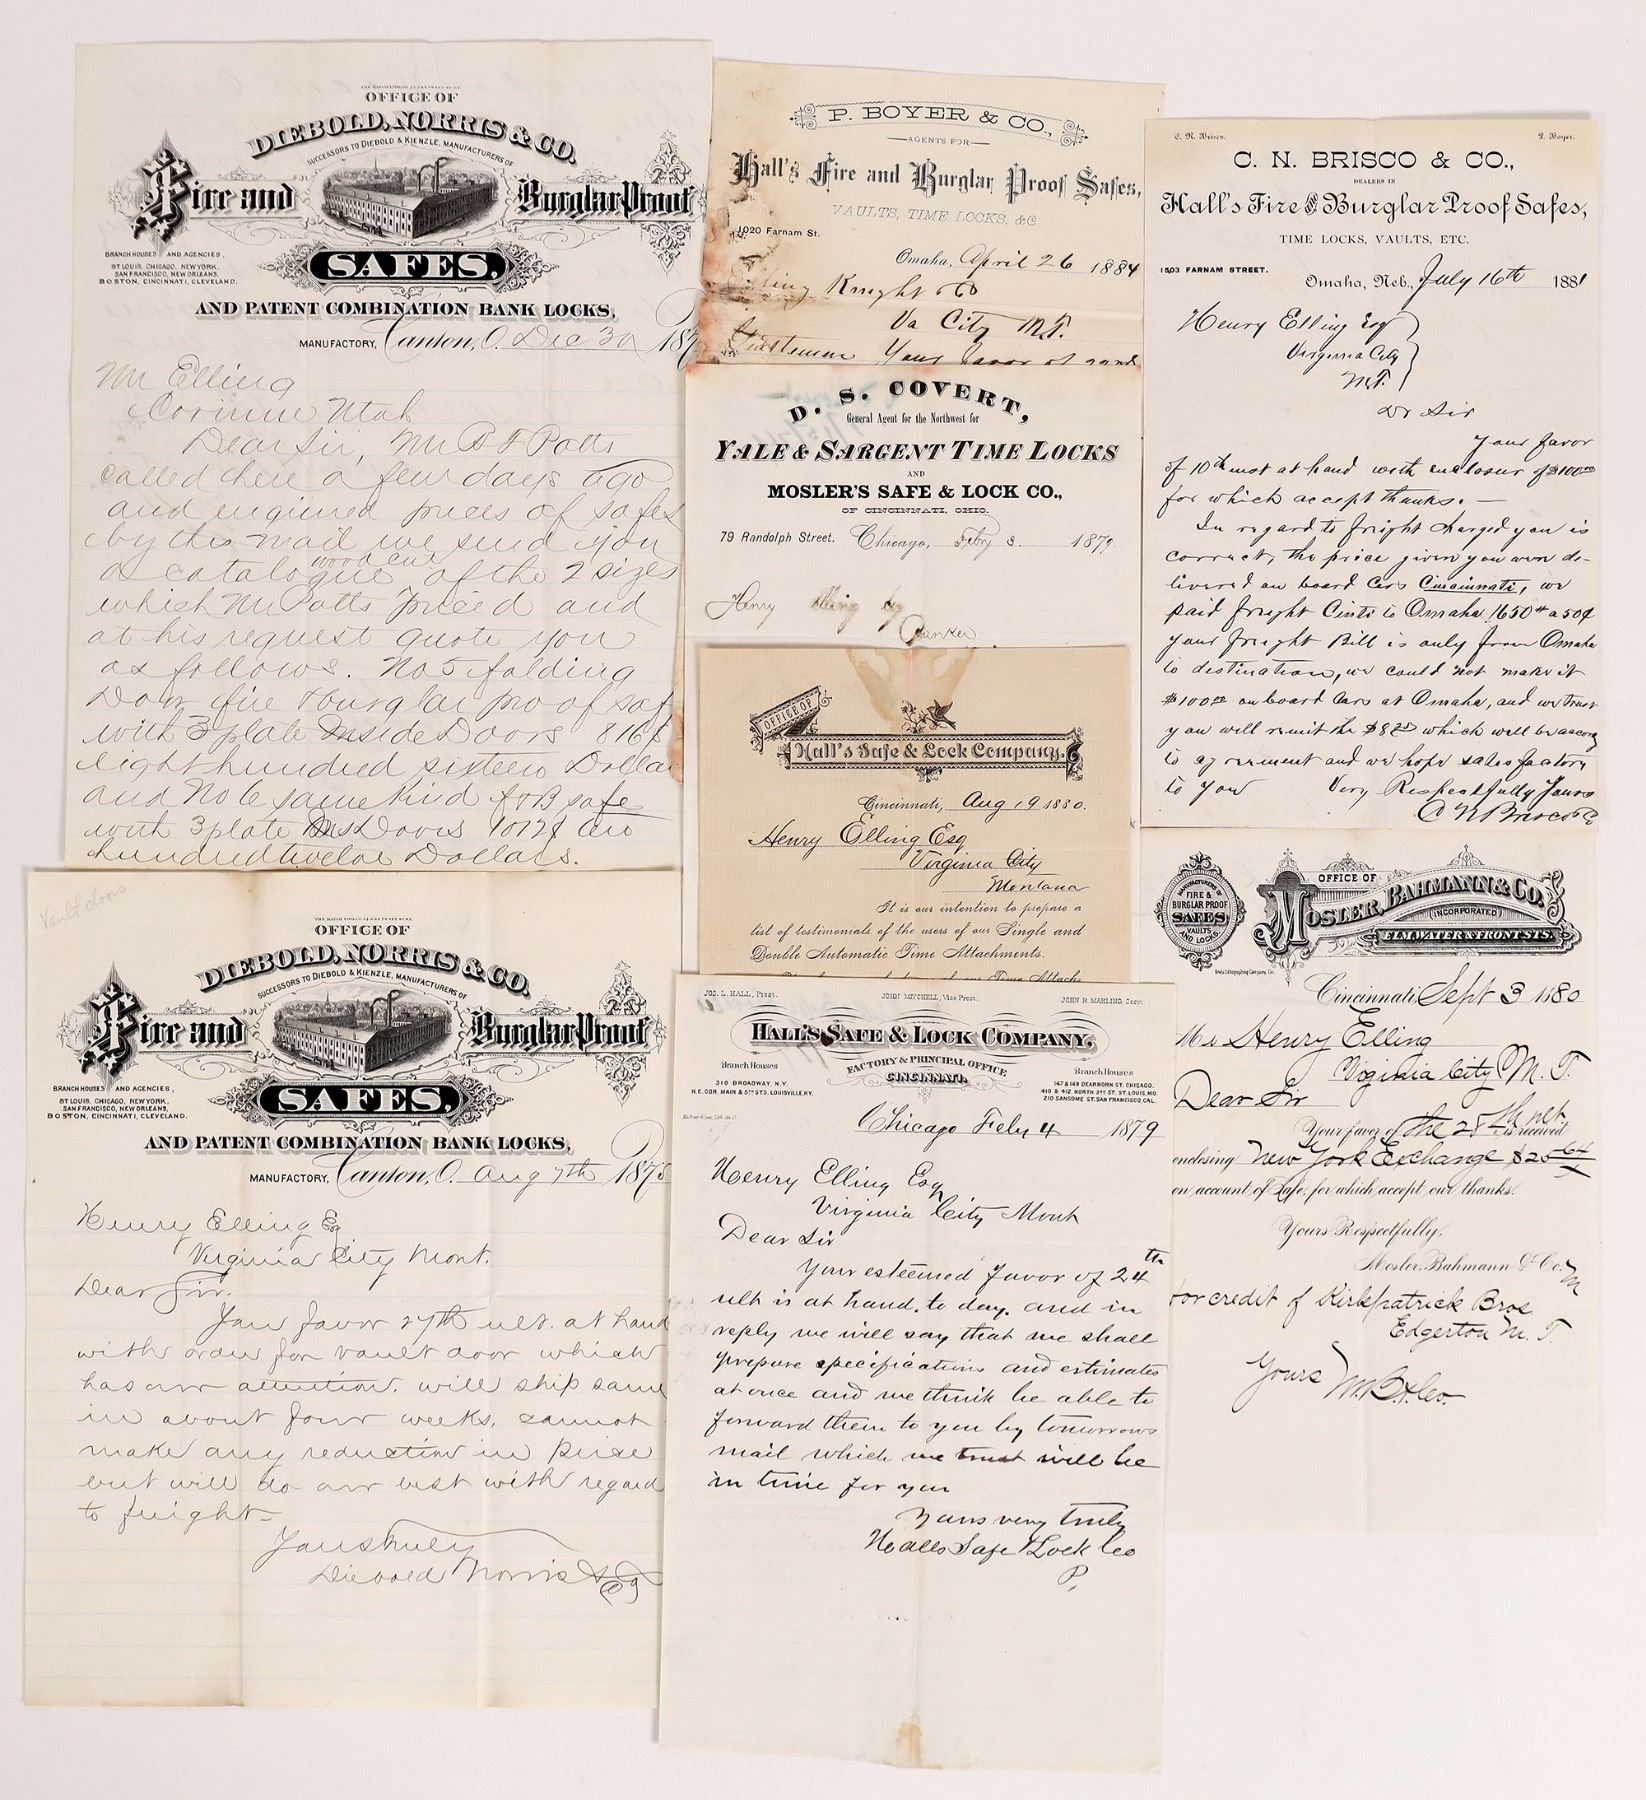 OFFICE OF
DIEBOLD, NORRIS & CO.
SUCCESSORS TO DIEBOLD & KIENZLE, MANUFACTURERS OF
Fire and Burglar Proof
BRANCH HOUSES AND AGENCIES,
ST LOUIS, CHICAGO, NEW YORK,
SAN FRANCISCO, NEW ORLEANS,
BOSTON, CINCINNATI, CLEVELAND.
SAFES,
AND PATENT COMBINATION BANK LOCKS,
MANUFACTORY, Canton, O. Dec 30 187
Mr Elling
Corinne Utah
Dear Sir, Mr B F Potts
called here a few days ago
and enquired prices of safes
by this mail we send you
a catalogue wood cut of the 2 sizes
which Mr Potts priced and
at his request quote you
as follows. No 5 folding
Door fire & burglar proof saf
with 3 plate Inside Doors 816$
eight hundred sixteen Dollar
and No 6 same kind F&B safe
with 3 plate Doors 1012$
hundred twelve Dollars.
Vault doors
OFFICE OF
DIEBOLD, NORRIS & CO.
SUCCESSORS TO DIEBOLD & KIENZLE, MANUFACTURERS OF
Fire and Burglar Proof
BRANCH HOUSES AND AGENCIES,
ST LOUIS, CHICAGO, NEW YORK,
SAN FRANCISCO, NEW ORLEANS,
BOSTON, CINCINNATI, CLEVELAND.
SAFES,
AND PATENT COMBINATION BANK LOCKS,
MANUFACTORY, Canton, O. Aug 7th 1875
Henry Elling Esq
Virginia City Mont.
Dear Sir.
Your favor 27th ult. at hand
with order for vault door which
has our attention. will ship same
in about four weeks, cannot
make any reduction in price
but will do our best with regard
to freight—
Yours truly
Diebold Norris & Co
P. BOYER & CO.,
AGENTS FOR
Hall's Fire and Burglar Proof Safes,
VAULTS, TIME LOCKS, &C
1020 Farnam St.
Omaha, April 26 1884
Elling Knight & Co
Va City M.T.
Gentlemen Your favor of
D. S. COVERT,
General Agent for the Northwest for
YALE & SARGENT TIME LOCKS
AND
MOSLER'S SAFE & LOCK CO.,
OF CINCINNATI, OHIO.
79 Randolph Street. Chicago, Feby 3. 1879.
Henry Elling Esq
Banker
OFFICE OF
Hall's Safe & Lock Company.
Cincinnati, Aug 19 1880.
Henry Elling Esq
Virginia City
Montana
It is our intention to prepare a
list of testimonials of the users of our Single and
Double Automatic Time Attachments.
JOS. L. HALL, Prest. JOHN MITCHELL, Vice Prest. JOHN B. MARLING, Secy.
HALL'S SAFE & LOCK COMPANY,
FACTORY & PRINCIPAL OFFICE
CINCINNATI.
Branch Houses
310 BROADWAY, N.Y.
N.E. COR. MAIN & 5TH STS. LOUISVILLE, KY.
Branch Houses
147 & 149 DEARBORN ST. CHICAGO.
410 & 412 NORTH 3RD ST. ST. LOUIS, MO.
210 SANSOME ST. SAN FRANCISCO, CAL.
Chicago Feby 4 1879
Henry Elling Esq
Virginia City Mont
Dear Sir
Your esteemed favor of 24th
ult is at hand. to day. and in
reply we will say that we shall
prepare specifications and estimates
at once and we think be able to
forward them to you by tomorrows
mail which we trust will be
in time for you
Yours very truly
Halls Safe & Lock Co
P.
C. N. Brisco. P. Boyer.
C. N. BRISCO & CO.,
DEALERS IN
Hall's Fire and Burglar Proof Safes,
TIME LOCKS, VAULTS, ETC.
1503 FARNAM STREET.
Omaha, Neb., July 16th 1881
Henry Elling Esq
Virginia City
M.T.
Dr Sir
Your favor
of 10th inst at hand with enclosur of $100.00
for which accept thanks.—
In regard to freight charged you is
correct, the price given you was de-
livered on board Cars Cincinnati, we
paid freight Cinti to Omaha 1650# a 50¢
your freight Bill is only from Omaha
to destination, we could not make it
$100.00 on board Cars at Omaha, and we trust
you will remit the $8.25 which will be accordg
to agreement and we hope satisfactory
to you Very Respectfully Yours
C N Brisco & Co
MANUFACTURERS OF
FIRE &
BURGLAR PROOF
SAFES
VAULTS
AND LOCKS.
OFFICE OF
MOSLER, BAHMANN & CO.
(INCORPORATED)
ELM, WATER & FRONT STS.
Cincinnati Sept 3 1880
Mr Henry Elling
Virginia City M. T.
Dear Sir
Your favor of the 28th ult. is received
enclosing New York Exchange $25 64
on account of Safe, for which accept our thanks.
Yours Respectfully,
Mosler, Bahmann & Co.
For credit of Kirkpatrick Bros
Edgerton M. T.
Yours M. B. & Co.